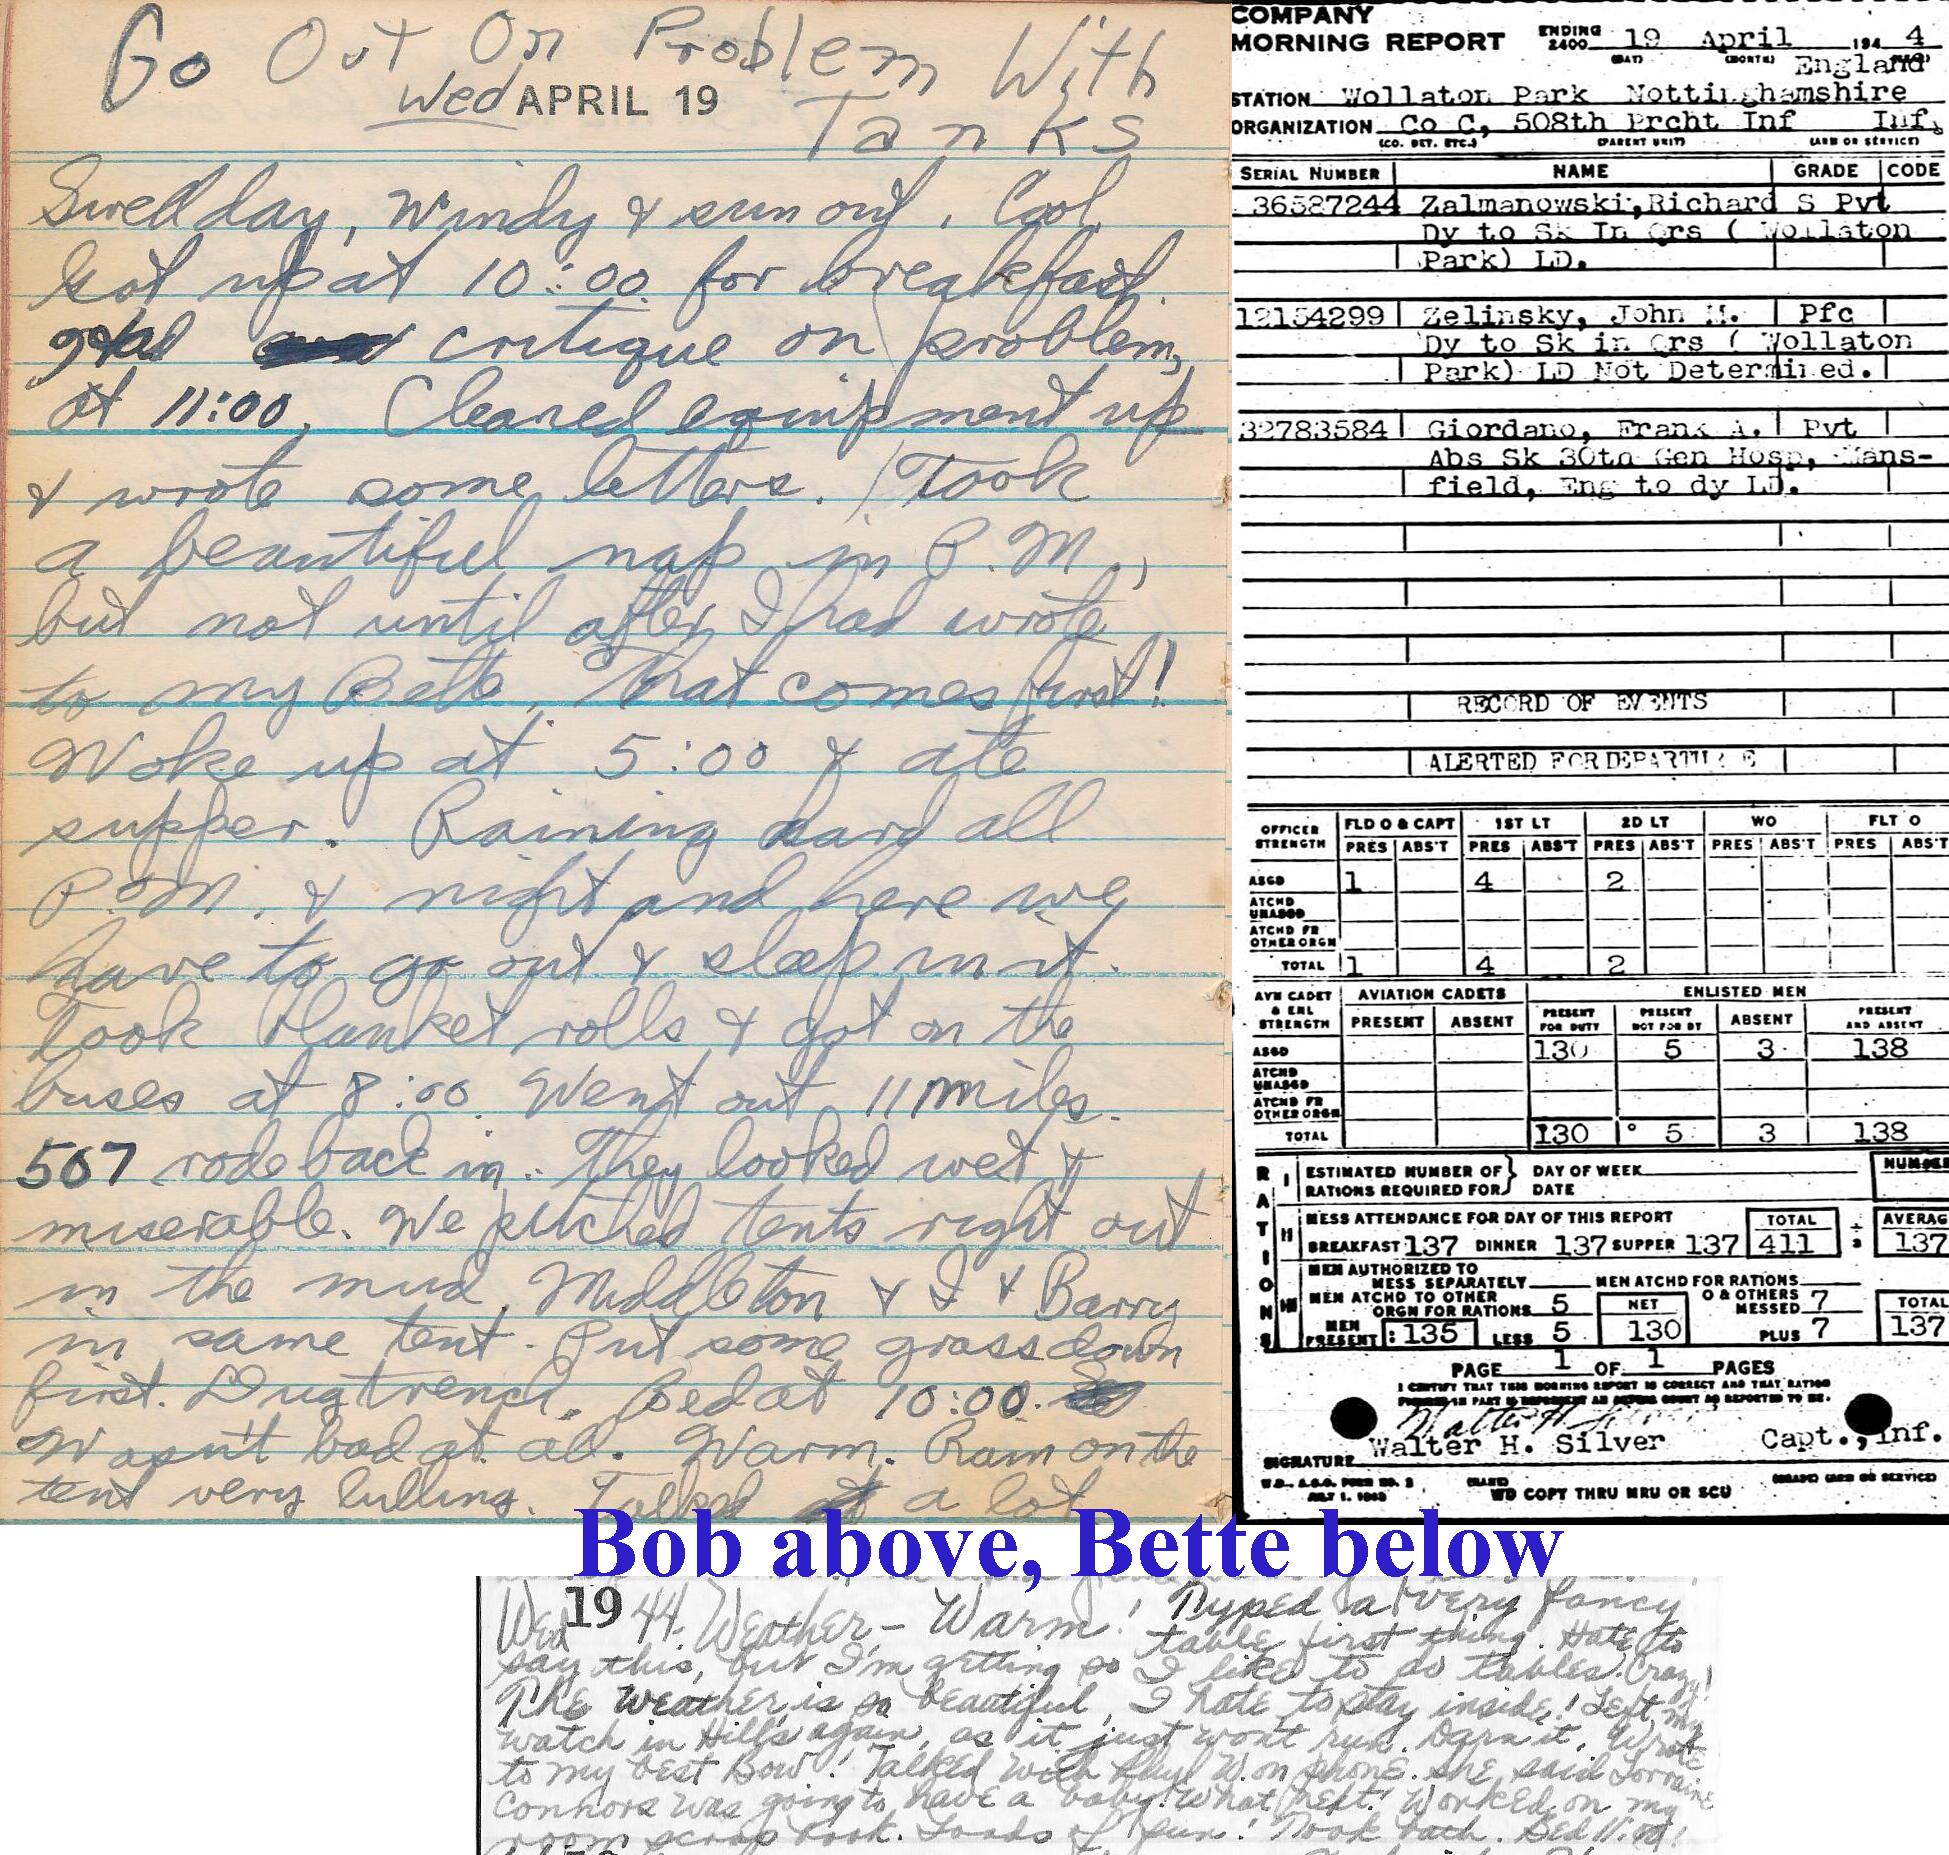 Go Out On Problem With
Tanks
Wed APRIL 19
Swell day, Windy & sun out. Cool.
Got up at 10:00 for breakfast.
critique on problem,
at 11:00. Cleaned equipment up
& wrote some letters. Took
a beautiful nap in P.M.,
but not until after I had wrote
to my Bette. That comes first!
Woke up at 5:00 & ate
supper. Raining hard all
P.M. & night and here we
have to go out & sleep in it.
Took blanket rolls & got on the
buses at 8:00. Went out 11 miles.
507 rode back in. They looked wet &
miserable. We pitched tents right out
in the mud. Middleton & I & Barry
in same tent. Put some grass down
first. Dug trench. Bed at 10:00.
Wasn't bad at all. Warm. Rain on the
tent very lulling. Talked a lot
COMPANY
MORNING REPORT ENDING 2400 19 April 194 4
(DAY) (MONTH) England
STATION Wollaton Park Nottinghamshire
ORGANIZATION Co C, 508th Prcht Inf Inf.
(CO. DET. ETC.) (PARENT UNIT) (ARM OR SERVICE)
SERIAL NUMBER NAME GRADE CODE
36587244 Zalmanowski, Richard S Pvt
Dy to Sk In Qrs ( Wollaton
Park) LD.
12154299 Zelinsky, John M. Pfc
Dy to Sk in Qrs ( Wollaton
Park) LD Not Determined.
32783584 Giordano, Frank A. Pvt
Abs Sk 30th Gen Hosp, Mans-
field, Eng to dy LD.
RECORD OF EVENTS
ALERTED FOR DEPARTURE
OFFICER STRENGTH FLD O & CAPT 1ST LT 2D LT WO FLT O
PRES ABS'T PRES ABS'T PRES ABS'T PRES ABS'T PRES ABS'T
ASGD 1 4 2
ATCHD UNASGD
ATCHD FR OTHER ORGN
TOTAL 1 4 2
AVN CADET & ENL STRENGTH AVIATION CADETS ENLISTED MEN
PRESENT ABSENT PRESENT FOR DUTY PRESENT NOT FOR DY ABSENT PRESENT AND ABSENT
ASGD 130 5 3 138
ATCHD UNASGD
ATCHD FR OTHER ORGN
TOTAL 130 5 3 138
RATIONS
I ESTIMATED NUMBER OF RATIONS REQUIRED FOR DAY OF WEEK DATE NUMBER
II MESS ATTENDANCE FOR DAY OF THIS REPORT TOTAL AVERAG
BREAKFAST 137 DINNER 137 SUPPER 137 411 ÷ 3 137
III MEN AUTHORIZED TO
MESS SEPARATELY MEN ATCHD FOR RATIONS
MEN ATCHD TO OTHER ORGN FOR RATIONS 5 NET O & OTHERS MESSED 7 TOTAL
MEN PRESENT: 135 LESS 5 130 PLUS 7 137
PAGE 1 OF 1 PAGES
I CERTIFY THAT THIS MORNING REPORT IS CORRECT AND THAT RATION
Walter H. Silver
Walter H. Silver Capt., Inf.
SIGNATURE
W.D., A.G.O. FORM NO. 1
JULY 1, 1943 WD COPY THRU MRU OR SCU
Bob above, Bette below
Wed 19 44. Weather - Warm! Typed a very fancy
table first thing. Hate to
say this, but I'm getting so I like to do tables. Crazy!
The weather is so beautiful, I hate to stay inside! Left my
watch in Hill's again, as it just won't run. Darn it. Wrote
to my best Bow! Talked with Phyl W. on phone. She said Lorraine
Connors was going to have a baby! What next! Worked on my
room scrap book. Loads of fun! Took bath. Bed